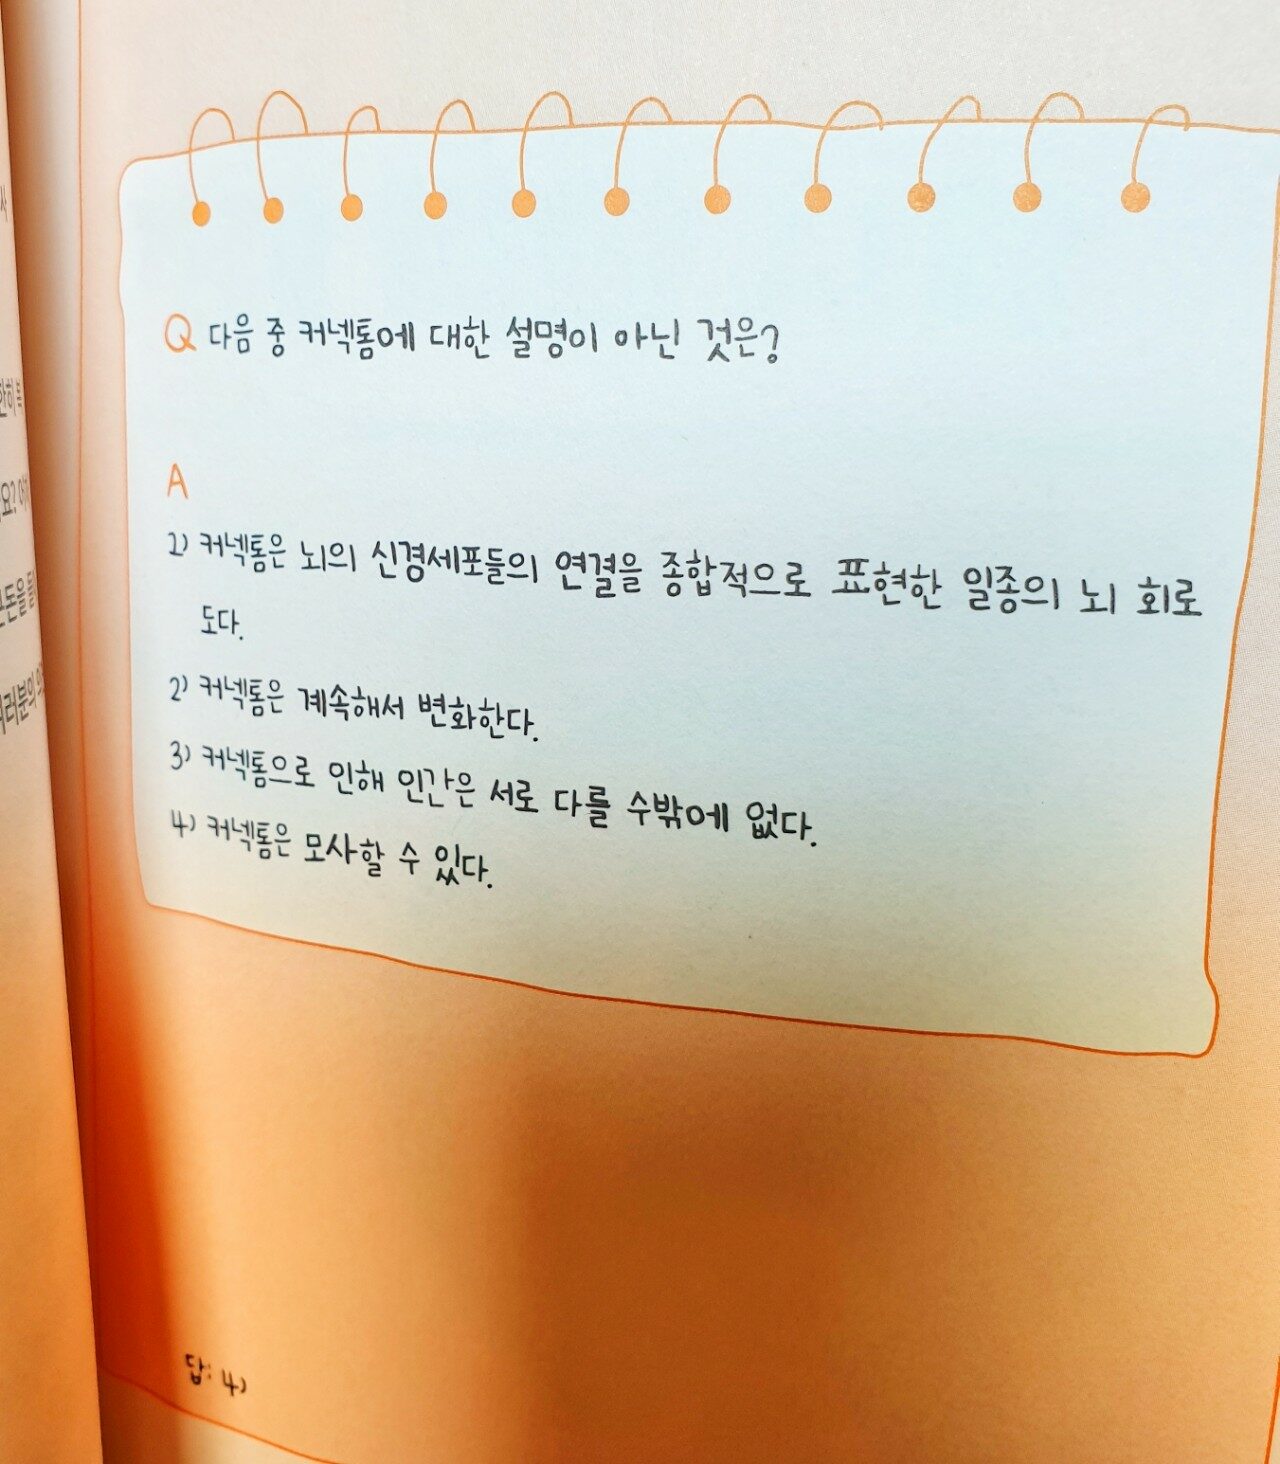 Q 다음 중 커넥톰에 대한 설명이 아닌 것은?
A
1) 커넥톰은 뇌의 신경세포들의 연결을 종합적으로 표현한 일종의 뇌 회로
도다.
2) 커넥톰은 계속해서 변화한다.
3) 커넥톰으로 인해 인간은 서로 다를 수밖에 없다.
4) 커넥톰은 모사할 수 있다.
답: 4)